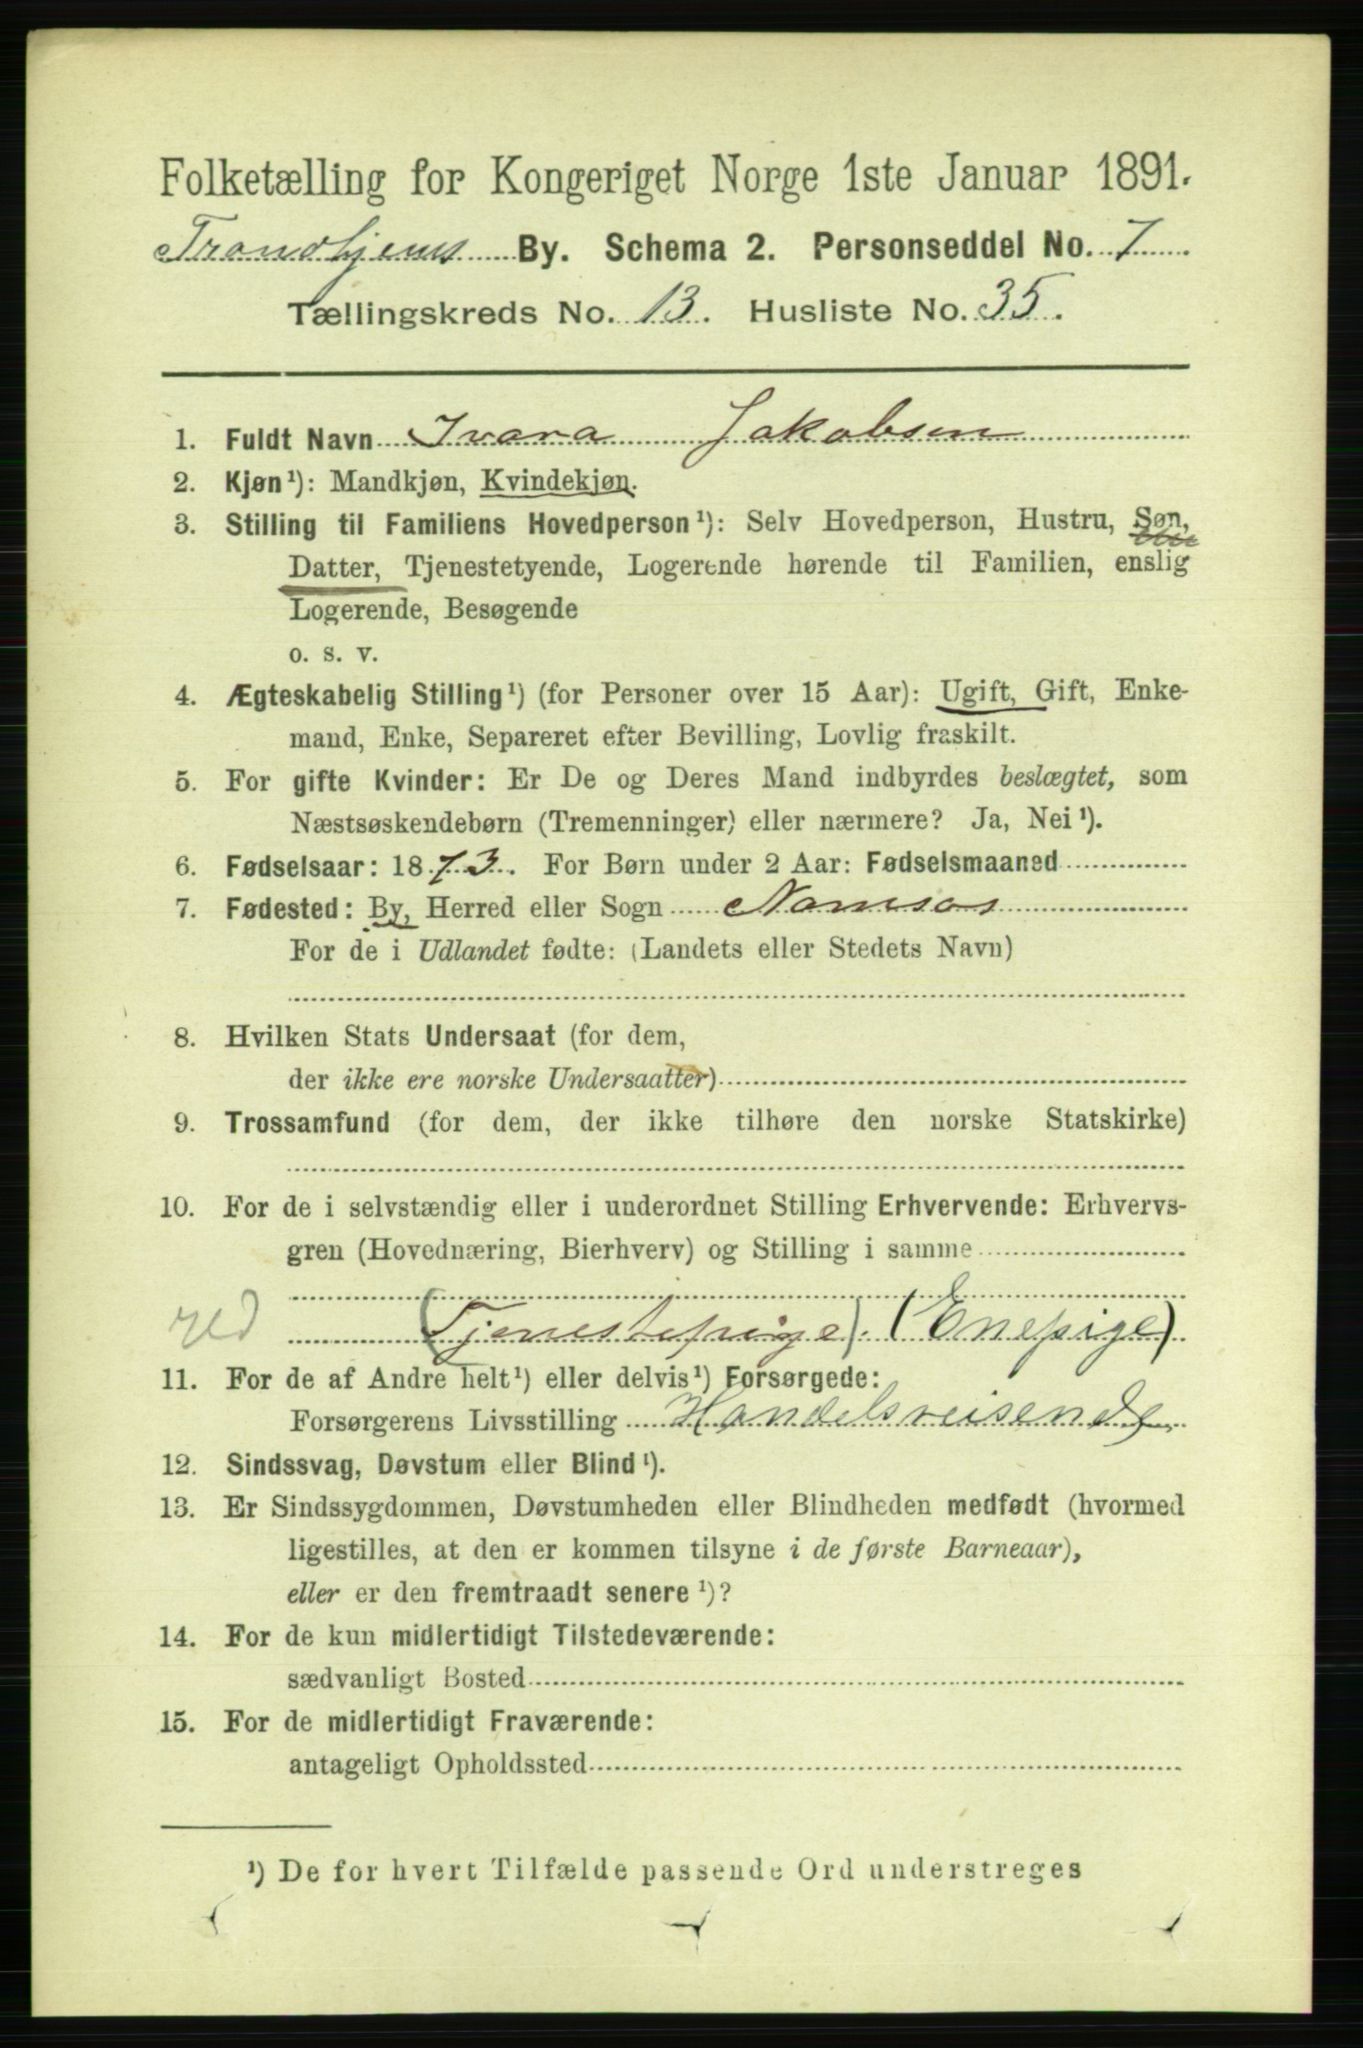 Folketælling for Kongeriget Norge 1ste Januar 1891.
Trondhjems By. Schema 2. Personseddel No. 7
Tællingskreds No. 13. Husliste No. 35.
1. Fuldt Navn Ivara Jakobsen
2. Kjøn¹): Mandkjøn, Kvindekjøn.
3. Stilling til Familiens Hovedperson¹): Selv Hovedperson, Hustru, Søn,
Datter, Tjenestetyende, Logerende hørende til Familien, enslig
Logerende, Besøgende
o. s. v.
4. Ægteskabelig Stilling¹) (for Personer over 15 Aar): Ugift, Gift, Enke-
mand, Enke, Separeret efter Bevilling, Lovlig fraskilt.
5. For gifte Kvinder: Er De og Deres Mand indbyrdes beslægtet, som
Næstsøskendebørn (Tremenninger) eller nærmere? Ja, Nei¹).
6. Fødselsaar: 1873. For Børn under 2 Aar: Fødselsmaaned
7. Fødested: By, Herred eller Sogn Namsos
For de i Udlandet fødte: (Landets eller Stedets Navn)
8. Hvilken Stats Undersaat (for dem,
der ikke ere norske Undersaatter)
9. Trossamfund (for dem, der ikke tilhøre den norske Statskirke)
10. For de i selvstændig eller i underordnet Stilling Erhvervende: Erhvervs-
gren (Hovednæring, Bierhverv) og Stilling i samme
(Tjenestepige). (Enepige)
11. For de af Andre helt¹) eller delvis¹) Forsørgede:
Forsørgerens Livsstilling Handelsreisende
12. Sindssvag, Døvstum eller Blind¹).
13. Er Sindssygdommen, Døvstumheden eller Blindheden medfødt (hvormed
ligestilles, at den er kommen tilsyne i de første Barneaar),
eller er den fremtraadt senere¹)?
14. For de kun midlertidigt Tilstedeværende:
sædvanligt Bosted
15. For de midlertidigt Fraværende:
antageligt Opholdssted
¹) De for hvert Tilfælde passende Ord understreges